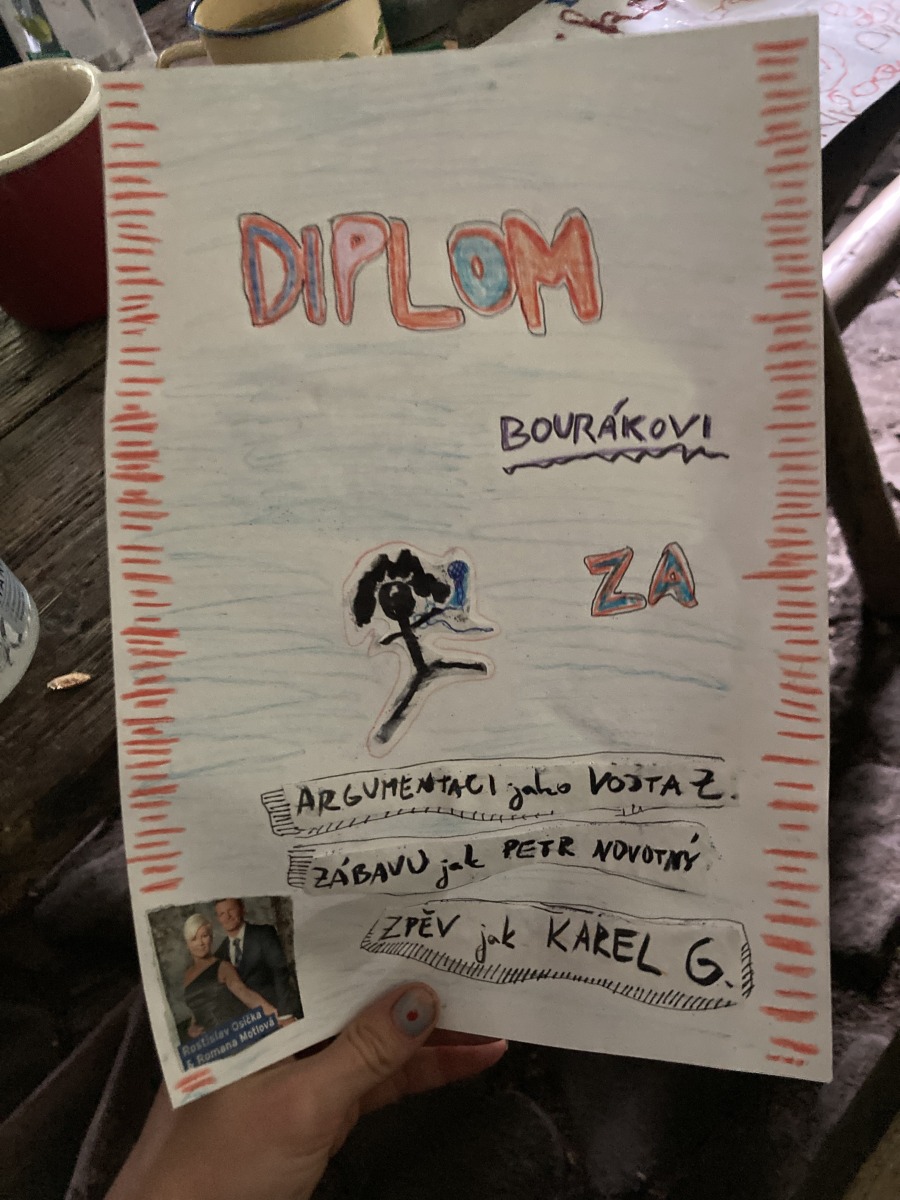 DIPLOM
BOURÁKOVI
ZA
ARGUMENTACI jako VOJTA Z.
ZÁBAVU jak PETR NOVOTNÝ
ZPĚV jak KAREL G.
Rostislav Osička
& Romana Motlová